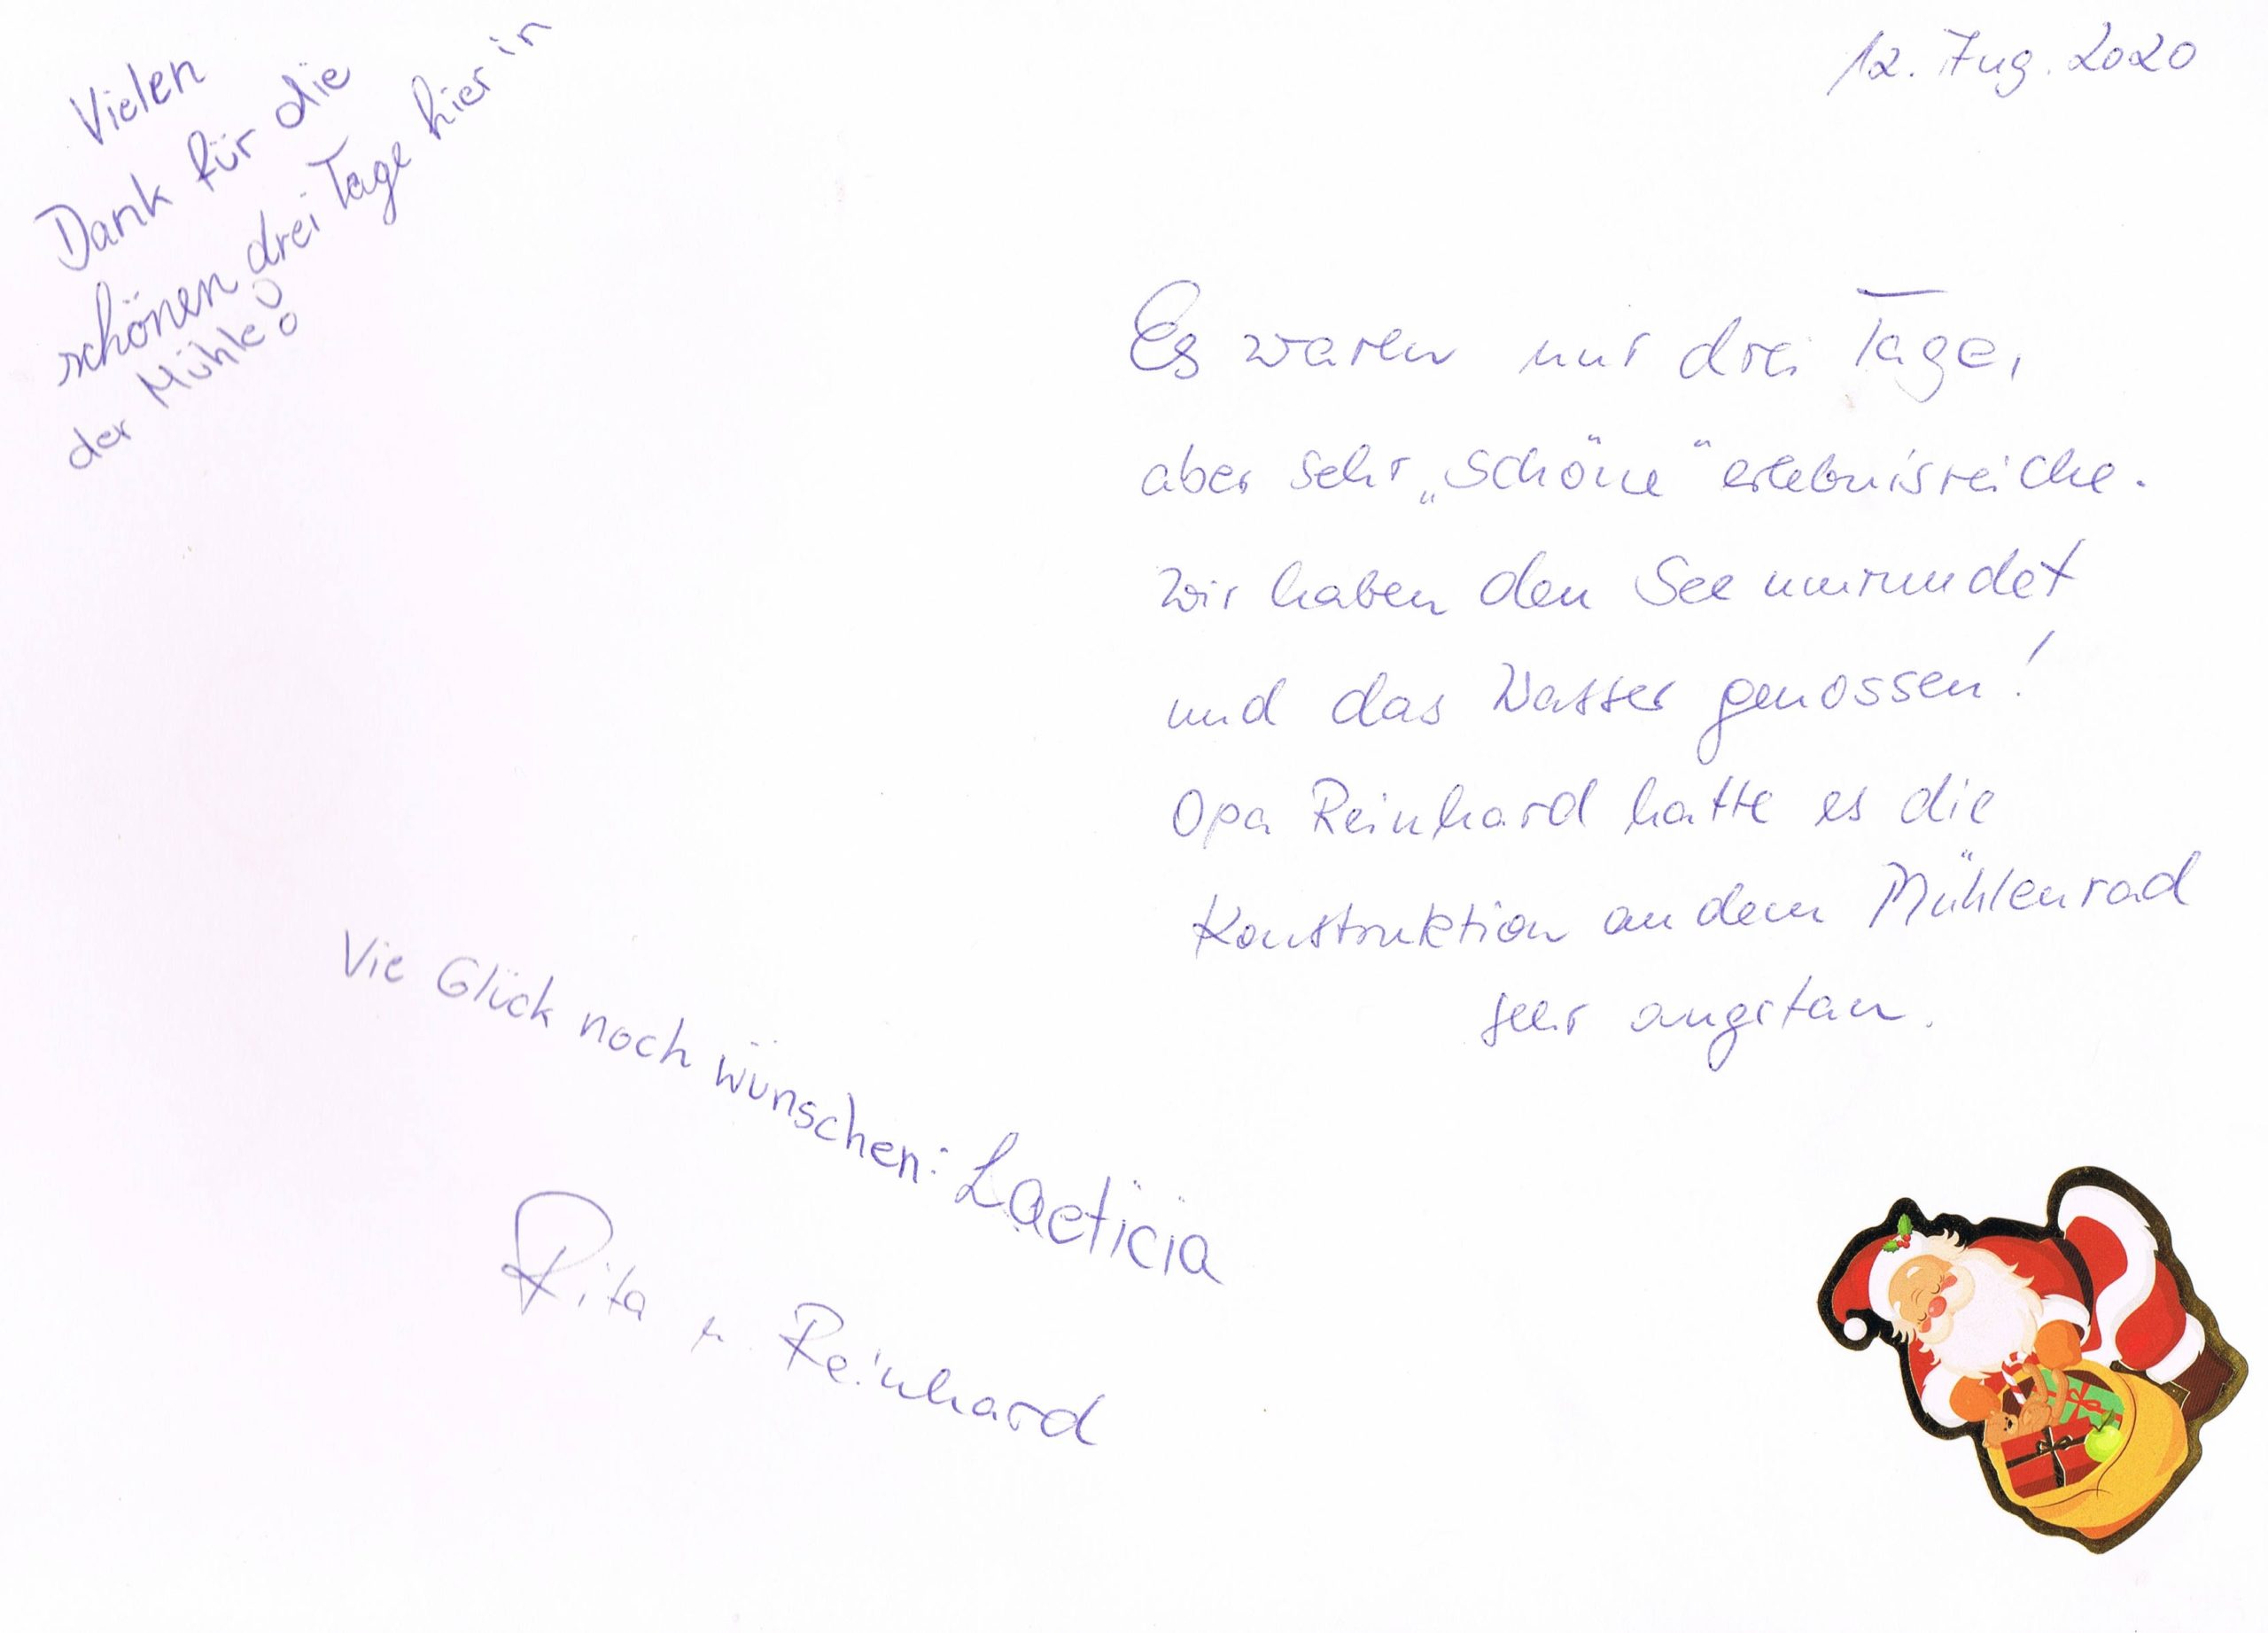 12. Aug. 2020
Vielen
Dank für die
schönen drei Tage hier in
der Mühle!
Es waren nur drei Tage,
aber sehr „schöne“ erlebnisreiche.
Wir haben den See umrundet
und das Wasser genossen!
Opa Reinhard hatte es die
Konstruktion an dem Mühlenrad
sehr angetan.
Vie Glück noch wünschen: Laeticia
Rita u. Reinhard